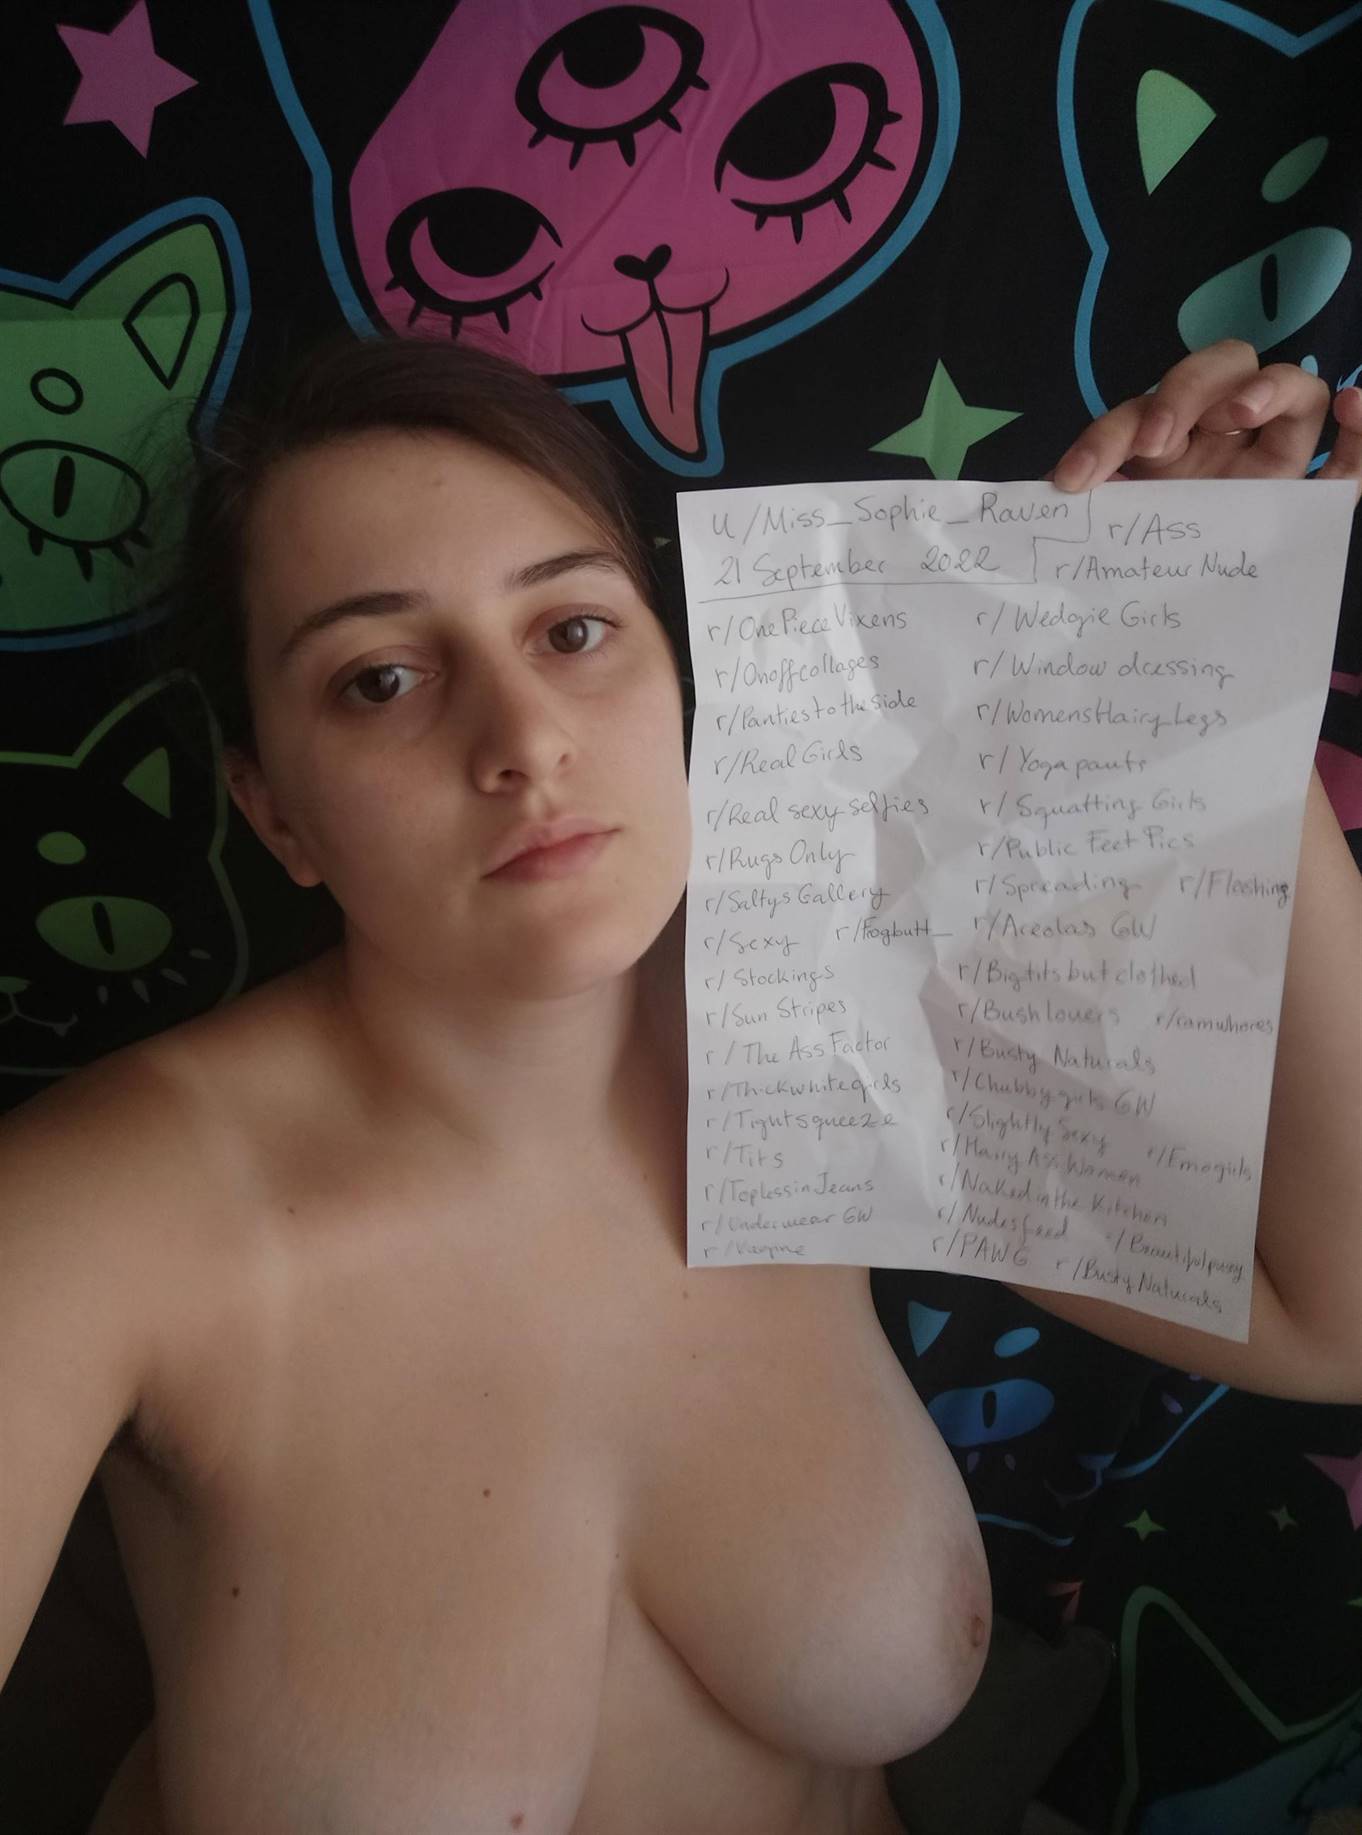 u/Miss_Sophie_Raven
21 September 2022
r/Ass
r/Amateur Nude
r/OnePieceVixens
r/Onoffcollages
r/Pantiestotheside
r/RealGirls
r/Real sexy selfies
r/Rugs Only
r/Saltys Gallery
r/Sexy r/Frogbutt_
r/Stockings
r/Sun Stripes
r/The Ass Factor
r/Thickwhitegirls
r/Tightsqueeze
r/Tits
r/ToplessinJeans
r/Underwear GW
r/Wedgie Girls
r/Window dressing
r/WomensHairyLegs
r/Yogapants
r/Squatting Girls
r/Public Feet Pics
r/Spreading r/Flashing
r/Areolas GW
r/Bigtits but clothed
r/Bush lovers r/camwhores
r/Busty Naturals
r/Chubby girls GW
r/Slightly Sexy r/Emogirls
r/Hairy Ass Women
r/Naked in the Kitchen
r/Nudes feed r/Beautifulpussy
r/PAWG r/Busty Naturals